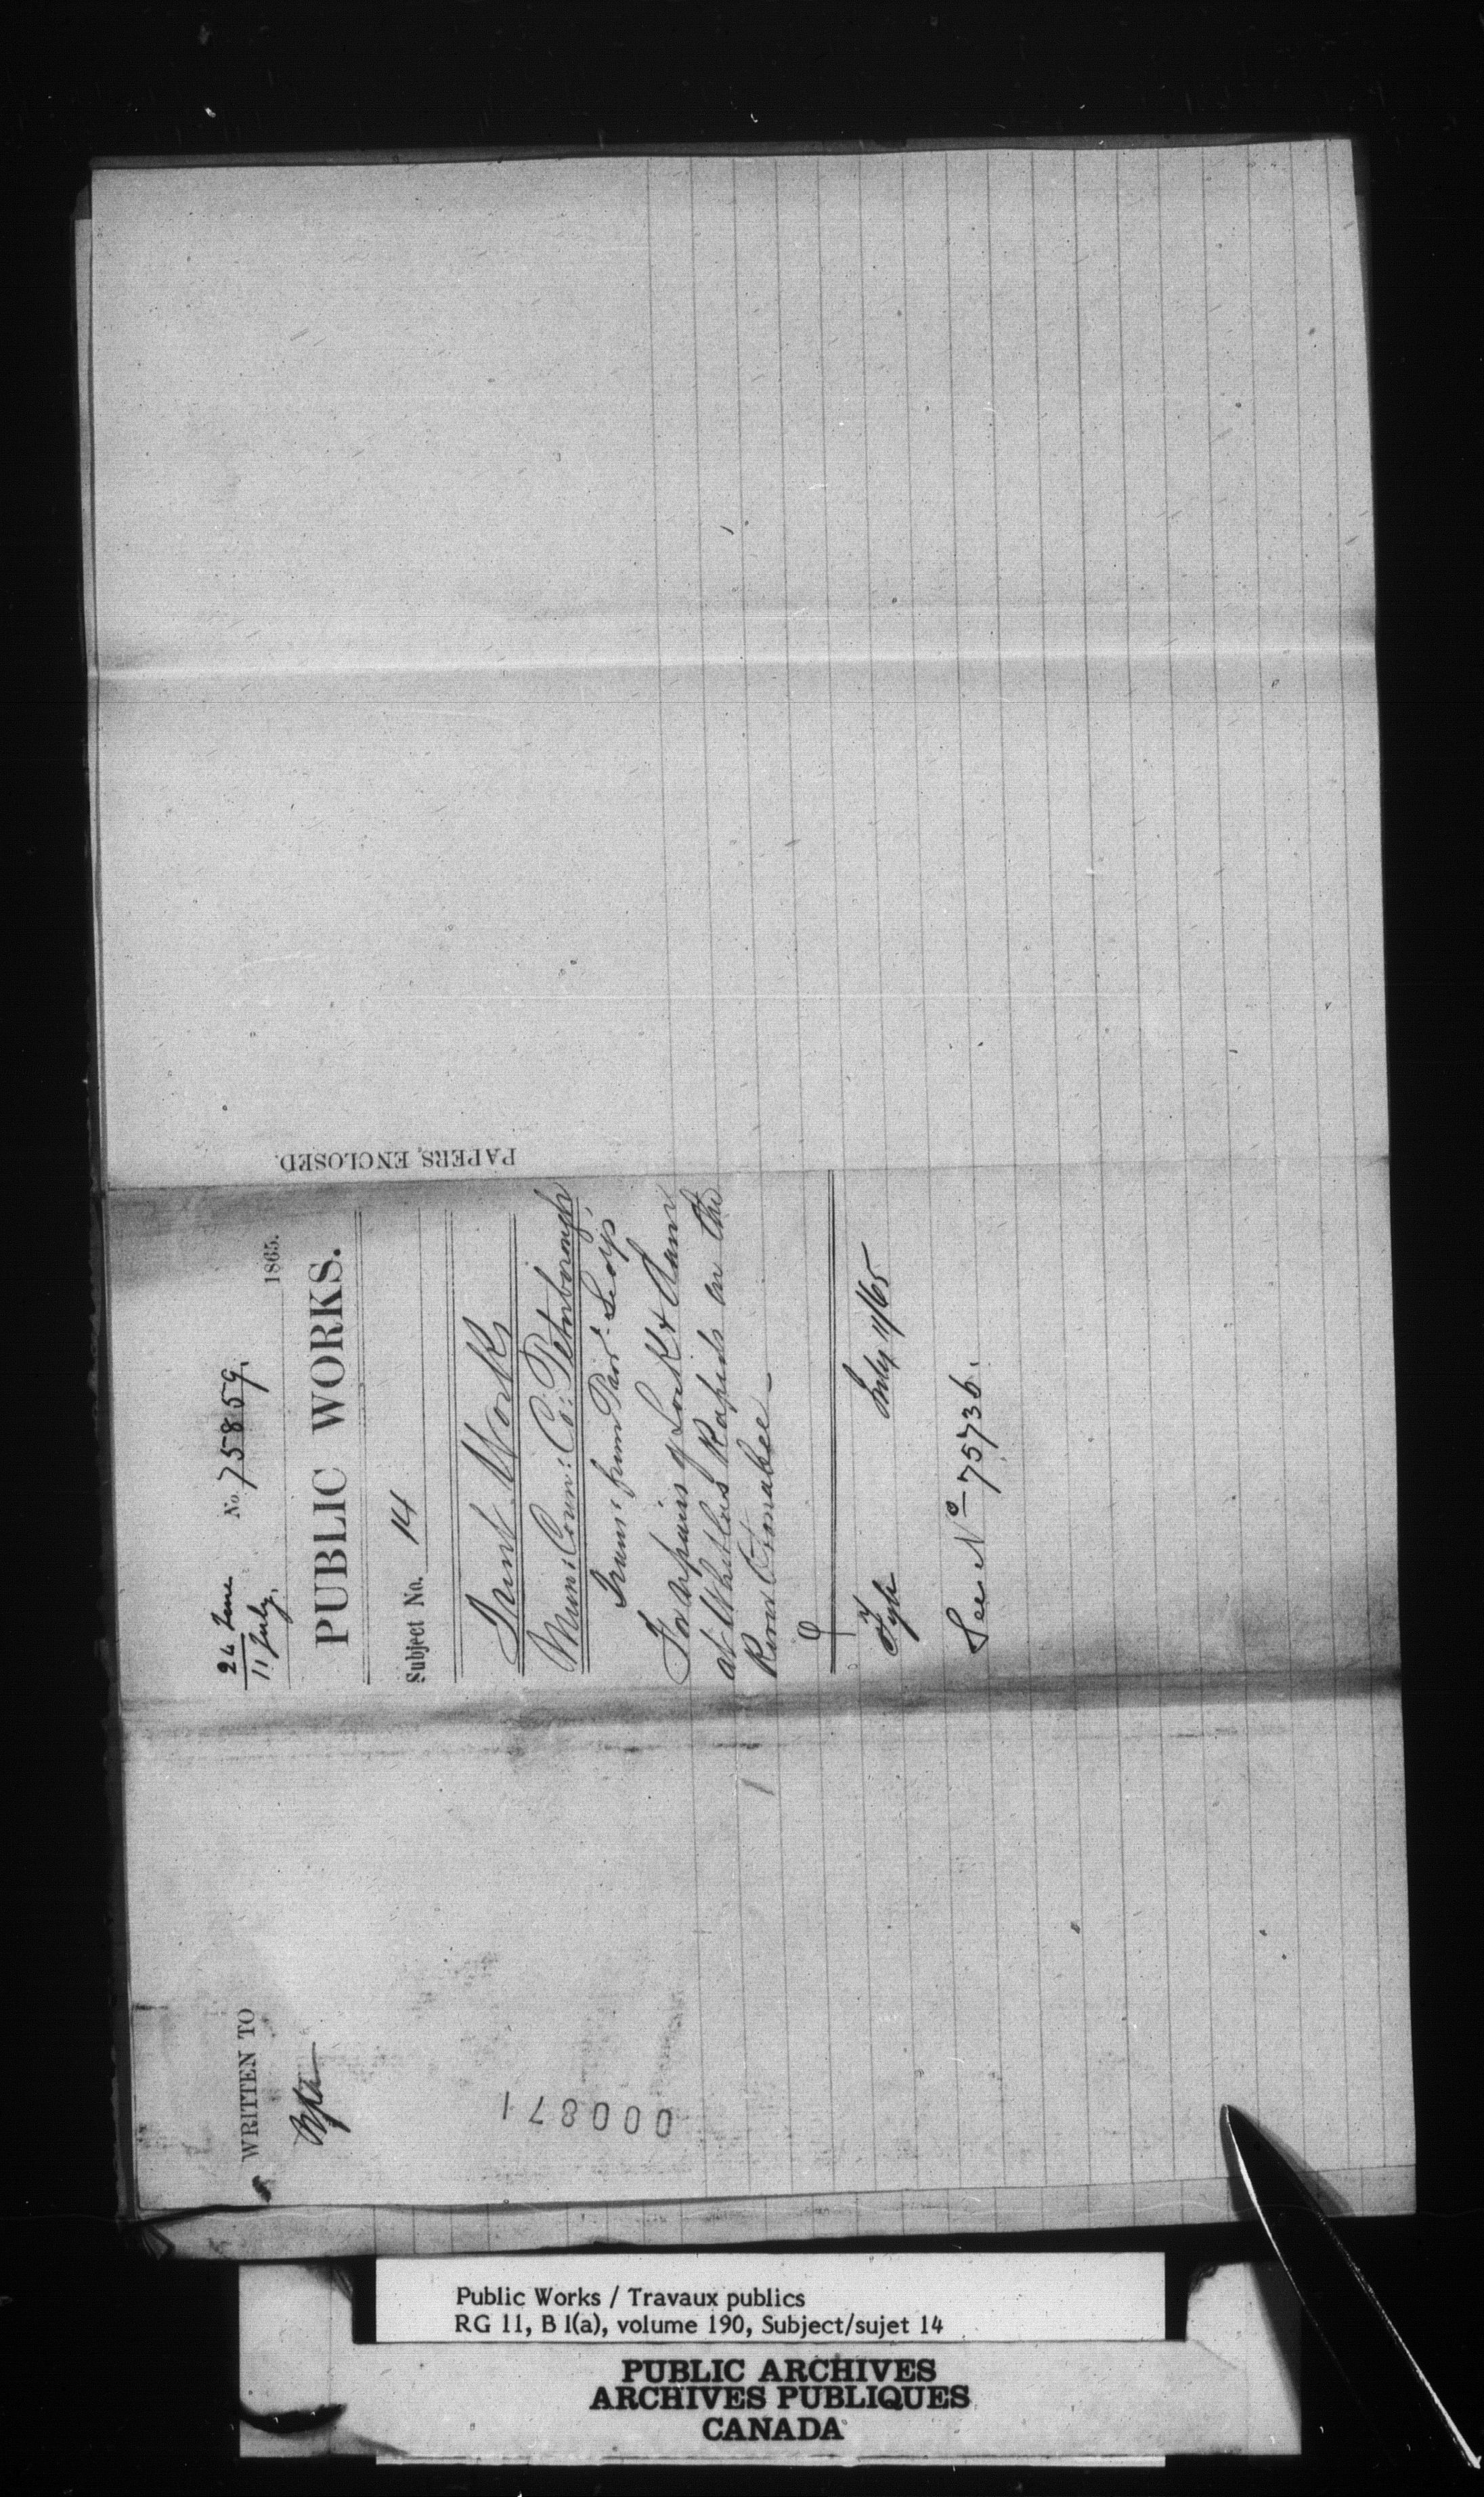 24 June
11 July.
No. 75859.
1865.
PUBLIC WORKS.
Subject No. 14
Trent Works
Muni: Coun: Co: Peterborough
Trans: from Prov: Secy
For repairs of Lock & Dam
at Whitlas Rapids on the
River Otonabee
July 11/65
See No 75736.
PAPERS, ENCLOSED.
WRITTEN TO
000871
Public Works / Travaux publics
RG 11, B 1(a), volume 190, Subject/sujet 14
PUBLIC ARCHIVES
ARCHIVES PUBLIQUES
CANADA